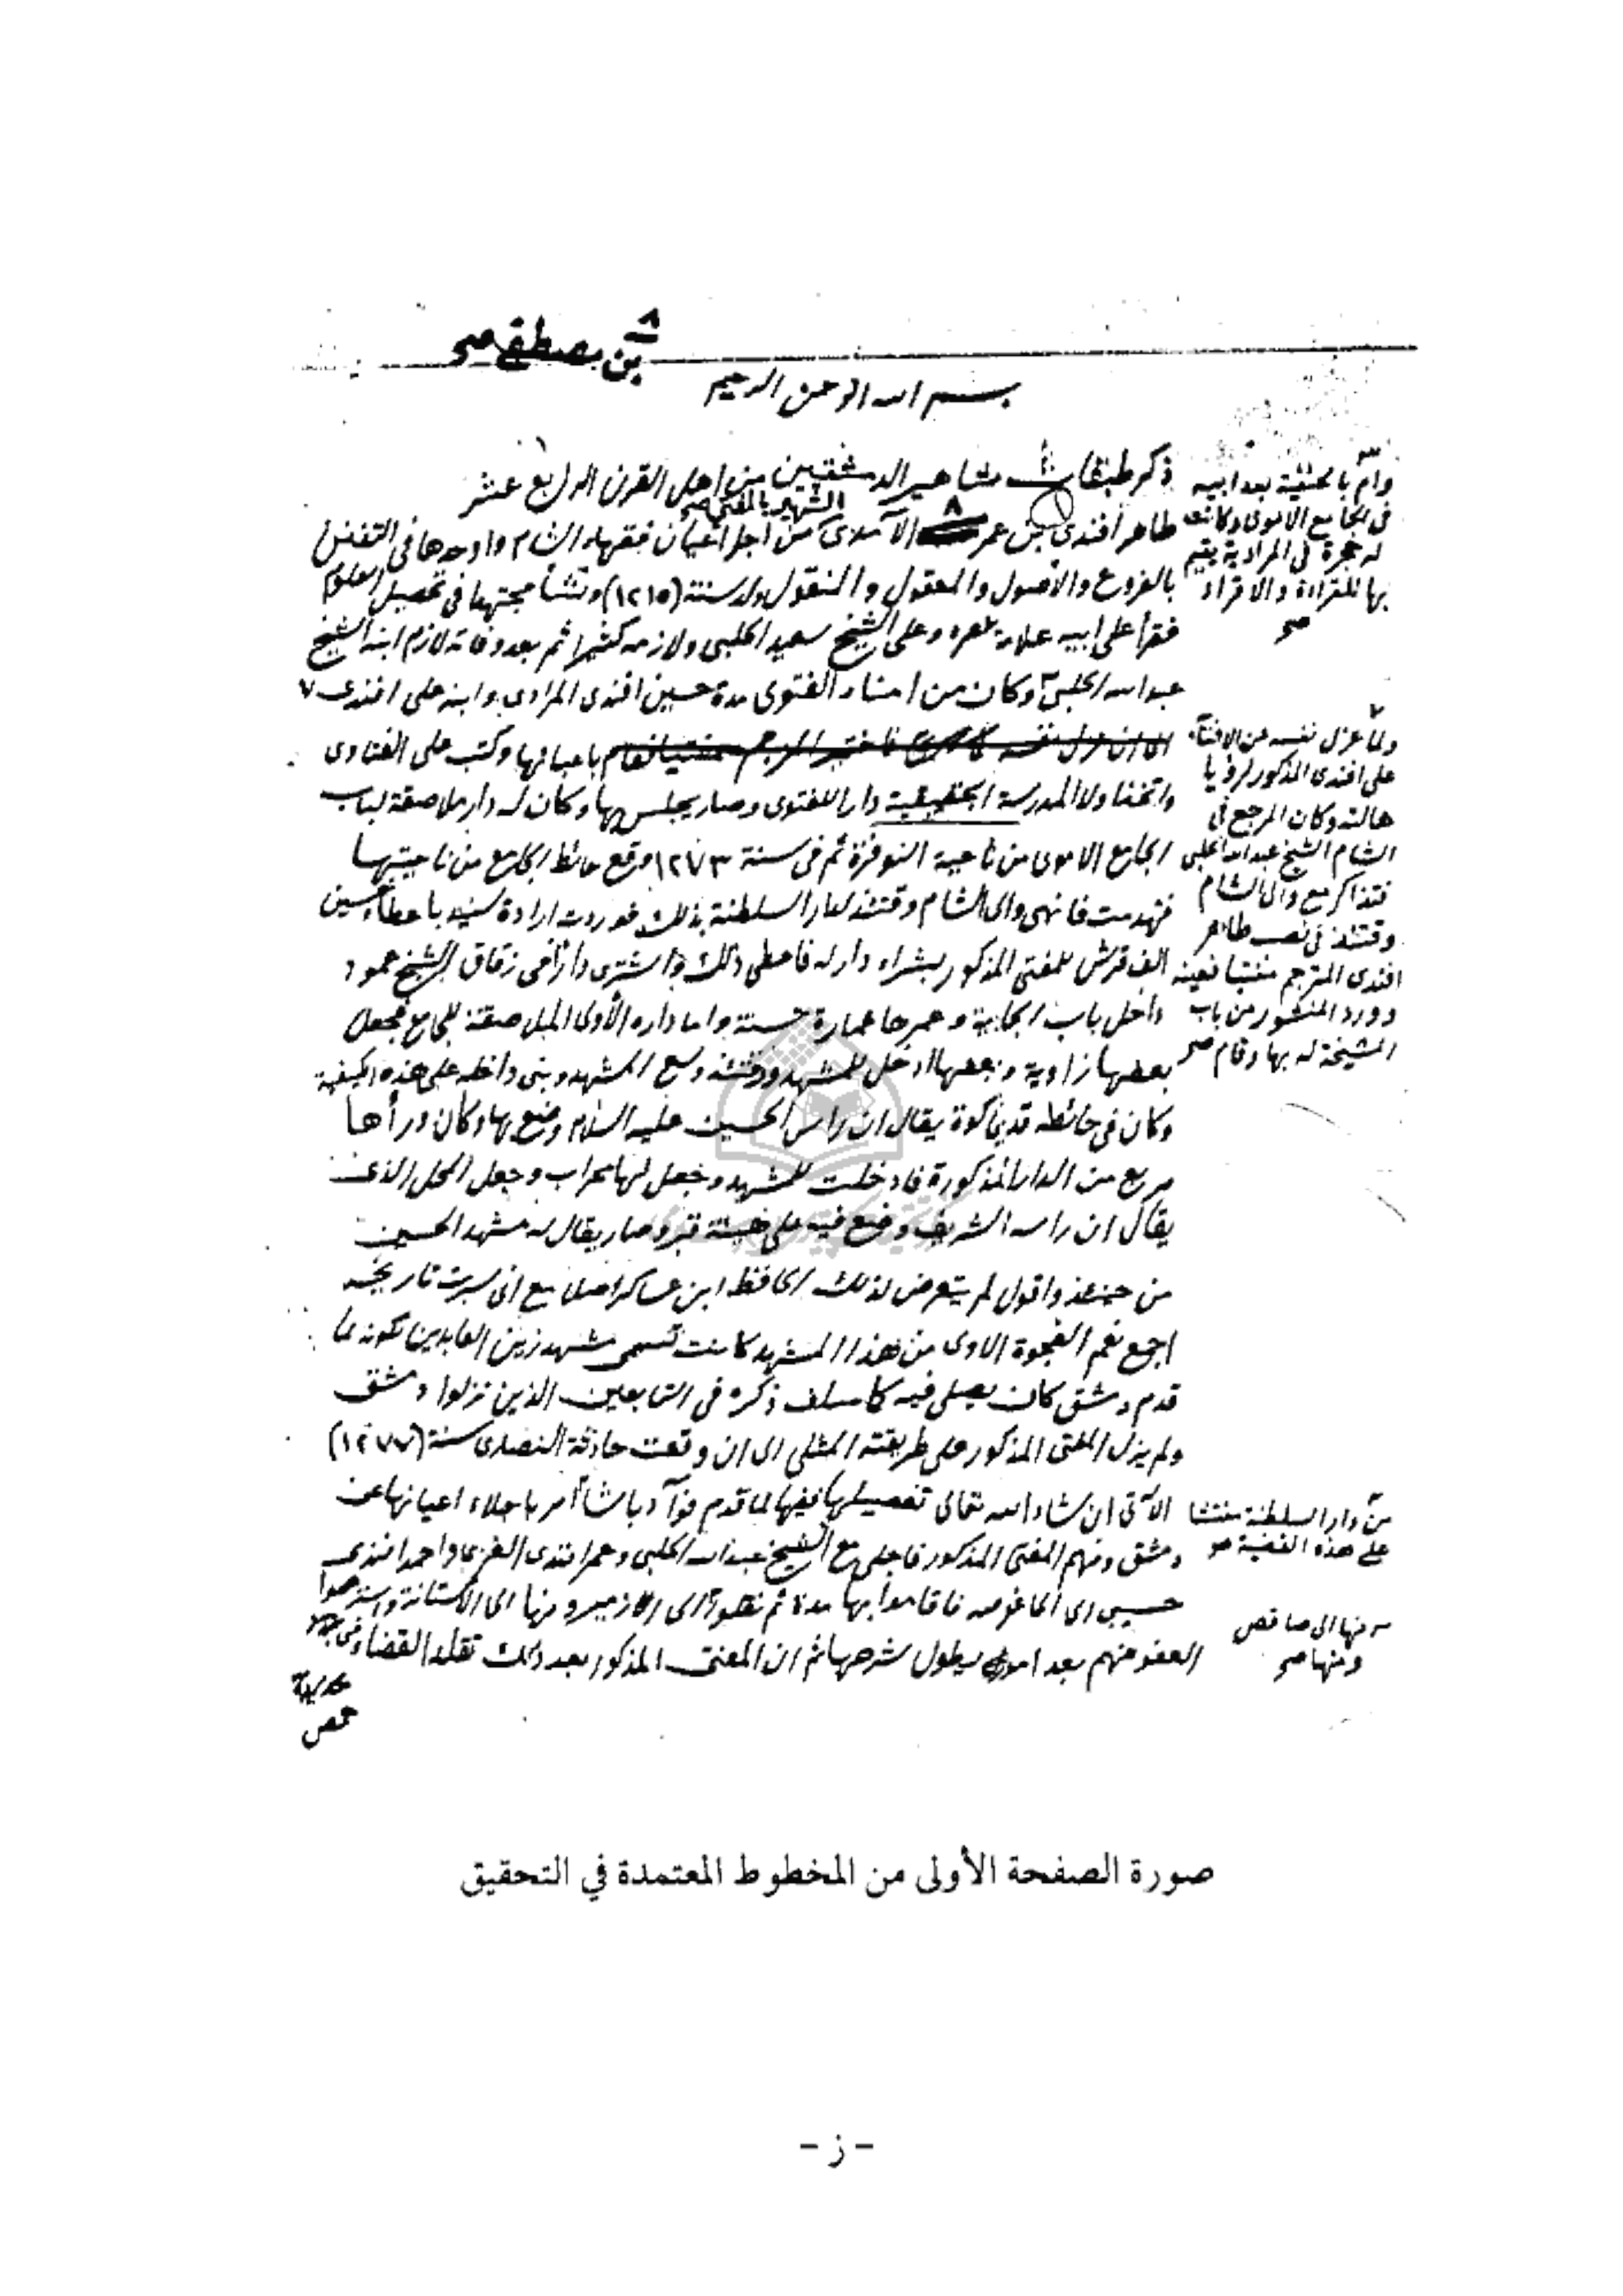 بن مصطفى صح
بسم الله الرحمن الرحيم
ذكر طبقات مشاهير الدمشقيين من اهل القرن الرابع عشر
الشهير بالمفتي صح
طاهر افندي بن عمر الآمدي من اجل اعيان فقهاء الشام واوحدها في التفنن
بالفروع والأصول والمعقول والمنقول ولد سنة (١٢١٥) ونشأ مجتهدا في تحصيل العلوم
فقرأ على ابيه علامة عصره وعلى الشيخ سعيد الحلبي ولازمه كثيرا ثم بعد وفاته لازم ابنه الشيخ
عبدالله الحلبي وكان من امناء الفتوى مدة حسين افندي المرادي وابنه علي افندي ٧
الى ان عزل نفسه باعبائها وكتب على الفتاوى
واتخذ اولا المدرسة الجقمقية دارا للفتوى وصار يجلس بها وكان له دار ملاصقة لباب
الجامع الاموي من ناحية النوفرة ثم في سنة ١٢٧٣ وقع حائط الجامع من ناحيتها
فتهدمت فانهى والي الشام وقتئذ لدار السلطنة بذلك فوردت ارادة سنيه باعطاء خمسين
الف قرش للمفتي المذكور بشراء دار له فاعطي ذلك واشترى دارا في زقاق الشيخ عمود
داخل باب الجابية وعمرها عمارة حسنة واما داره الأولى الملاصقة للجامع فجعل
بعضها زاوية وبعضها ادخل للمشهد وقتئذ وسع المشهد وبنى داخله على هذه الكيفية
وكان في حائطه قديما كوة يقال ان راس الحسين عليه السلام وضع بها وكان ورأها
مربع من الدار المذكورة فادخلت للمشهد وجعل لها محراب وجعل المحل الذي
يقال ان راسه الشريف وضع فيه على هيئة قبر وصار يقال له مشهد الحسين
من حينئذ واقول لم يتعرض لذلك الحافظ ابن عساكر اصلا مع اني سبرت تاريخه
اجمع نعم الفجوة الاولى من هذا المشهد كانت تسمى مشهد زين العابدين لكونه لما
قدم دمشق كان يصلي فيه كما سلف ذكره في التابعين الذين نزلوا دمشق
ولم يزل المفتي المذكور على طريقته المثلى الى ان وقعت حادثة النصارى سنة (١٢٧٧)
الآتي ان شاء الله تعالى تفصيلها ففيها لما قدم فوآد باشا أمر باجلاء اعيانها عن
دمشق ومنهم المفتي المذكور فاجلي مع الشيخ عبدالله الحلبي وعمر افندي الغزي واحمد افندي
حسيبي الى الماغوصه فاقاموا بها مدة ثم نقلوا الى الازمير ومنها الى الاستانة واسترحموا
العفو منهم بعد امور يطول شرحها ثم ان المفتي المذكور بعد ذلك تقلد القضاء في
حمص
وأمّ بالحنفية بعد ابيه
في الجامع الاموي وكانت
له حجرة في المرادية يقيم
بها للقراءة والاقراء
صح
ولما عزل نفسه عن الافتاء
علي افندي المذكور لرؤيا
هالته وكان المرجع في
الشام الشيخ عبدالله الحلبي
فتذاكر مع والي الشام
وقتئذ في نصب طاهر
افندي المترجم مفتيا فعينه
وورد المنشور من باب
المشيخة له بها وقام صح
من دار السلطنة مفتشا
على هذه القضية صح
ومنها صح
صورة الصفحة الأولى من المخطوط المعتمدة في التحقيق
- ز -